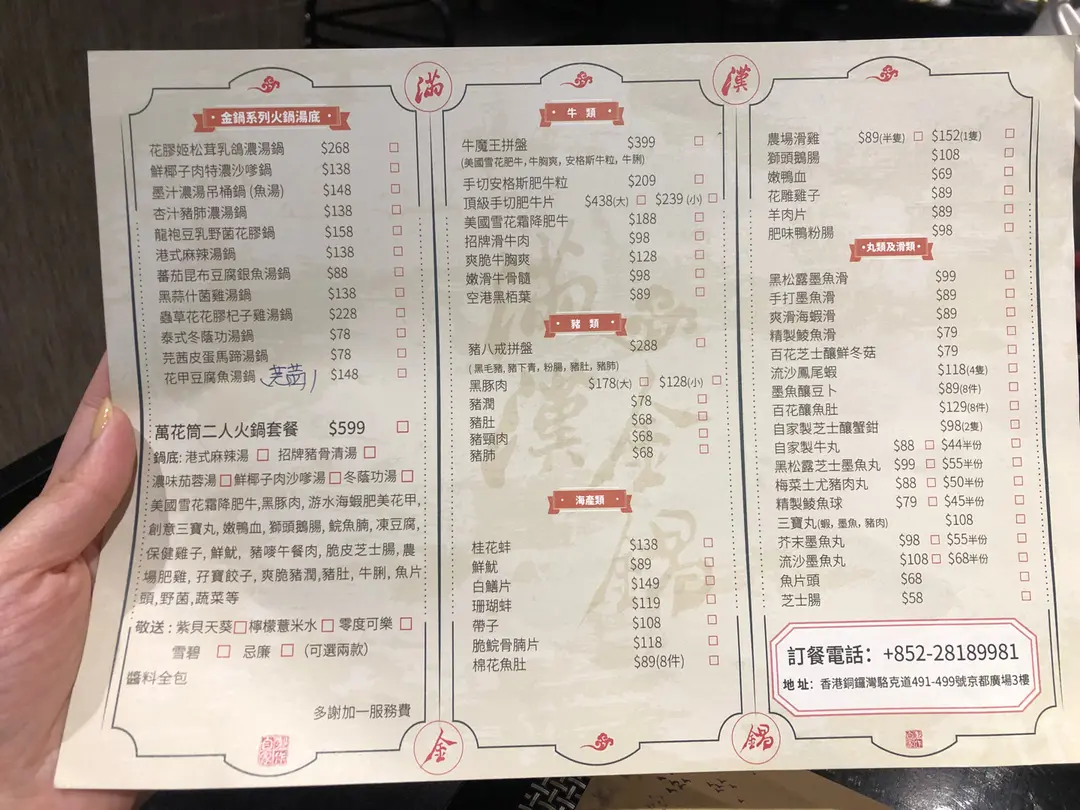 滿
漢
金鍋系列火鍋湯底
花膠姬松茸乳鴿濃湯鍋 $268
鮮椰子肉特濃沙嗲鍋 $138
墨汁濃湯吊桶鍋 (魚湯) $148
杏汁豬肺濃湯鍋 $138
龍袍豆乳野菌花膠鍋 $158
港式麻辣湯鍋 $138
蕃茄昆布豆腐銀魚湯鍋 $88
黑蒜什菌雞湯鍋 $138
蟲草花花膠杞子雞湯鍋 $228
泰式冬蔭功湯鍋 $78
芫茜皮蛋馬蹄湯鍋 $78
花甲豆腐魚湯鍋 $148
萬花筒二人火鍋套餐 $599
鍋底: 港式麻辣湯 招牌豬骨清湯
濃味茄蓉湯 鮮椰子肉沙嗲鍋 冬蔭功湯
美國雪花霜降肥牛, 黑豚肉, 游水海蝦肥美花甲,
創意三寶丸, 嫩鴨血, 獅頭鵝腸, 鯇魚腩, 凍豆腐,
保健雞子, 鮮魷, 豬嘜午餐肉, 脆皮芝士腸, 農
場肥雞, 孖寶餃子, 爽脆豬潤, 豬肚, 牛脷, 魚片
頭, 野菌, 蔬菜等
敬送: 紫貝天葵 檸檬薏米水 零度可樂
雪碧 忌廉 (可選兩款)
醬料全包
多謝加一服務費
牛 類
牛魔王拼盤 $399
(美國雪花肥牛, 牛胸爽, 安格斯牛粒, 牛脷)
手切安格斯肥牛粒 $209
頂級手切肥牛片 $438(大) $239 (小)
美國雪花霜降肥牛 $188
招牌滑牛肉 $98
爽脆牛胸爽 $128
嫩滑牛骨髓 $98
空港黑栢葉 $89
豬 類
豬八戒拼盤 $288
(黑毛豬, 豬下青, 粉腸, 豬肚, 豬肺)
黑豚肉 $178(大) $128(小)
豬潤 $78
豬肚 $68
豬頸肉 $68
豬肺 $68
海產類
桂花蚌 $138
鮮魷 $89
白鱔片 $149
珊瑚蚌 $119
帶子 $108
脆鯇骨腩片 $118
棉花魚肚 $89(8件)
農場滑雞 $89(半隻) $152(1隻)
獅頭鵝腸 $108
嫩鴨血 $69
花雕雞子 $89
羊肉片 $89
肥味鴨粉腸 $98
丸類及滑類
黑松露墨魚滑 $99
手打墨魚滑 $89
爽滑海蝦滑 $89
精製鯪魚滑 $79
百花芝士釀鮮冬菇 $79
流沙鳳尾蝦 $118(4隻)
墨魚釀豆卜 $89(8件)
百花釀魚肚 $129(8件)
自家製芝士釀蟹鉗 $98(2隻)
自家製牛丸 $88 $44半份
黑松露芝士墨魚丸 $99 $55半份
梅菜土尤豬肉丸 $88 $50半份
精製鯪魚球 $79 $45半份
三寶丸(蝦, 墨魚, 豬肉) $108
芥末墨魚丸 $98 $55半份
流沙墨魚丸 $108 $68半份
魚片頭 $68
芝士腸 $58
訂餐電話: +852-28189981
地 址: 香港銅鑼灣駱克道491-499號京都廣場3樓
金
鍋
滿漢金鍋